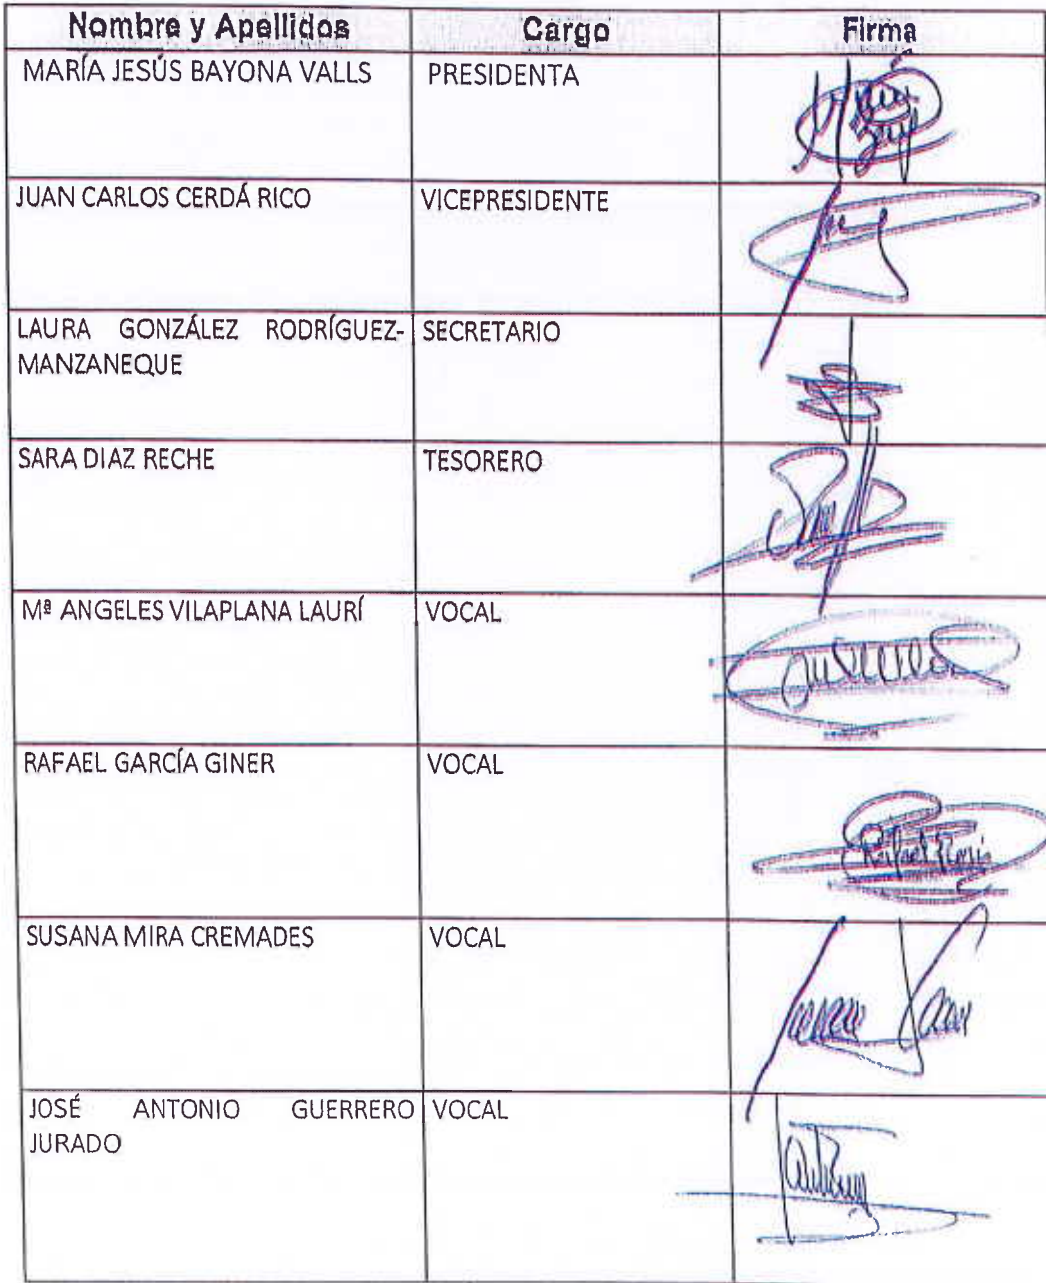 Nombre y Apellidos Cargo Firma
MARÍA JESÚS BAYONA VALLS PRESIDENTA
JUAN CARLOS CERDÁ RICO VICEPRESIDENTE
LAURA GONZÁLEZ RODRÍGUEZ- SECRETARIO
MANZANEQUE
SARA DIAZ RECHE TESORERO
Mª ANGELES VILAPLANA LAURÍ VOCAL
RAFAEL GARCÍA GINER VOCAL
Rafael
SUSANA MIRA CREMADES VOCAL
JOSÉ ANTONIO GUERRERO VOCAL
JURADO